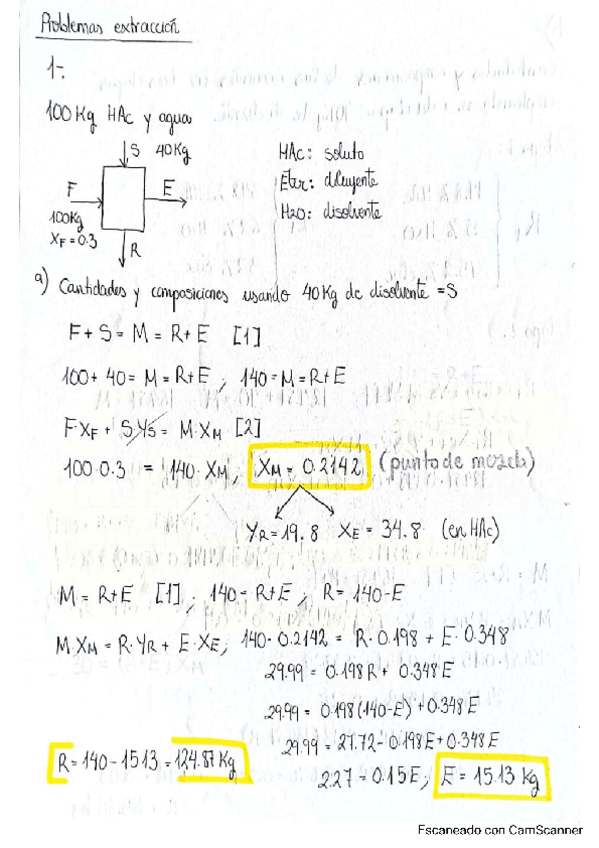 Problemas extracción
1-.
100 Kg HAc y agua
S 40 Kg
F
E
100 Kg
XF = 0.3
R
HAc: soluto
Éter: diluyente
H2O: disolvente
a) Cantidades y composiciones usando 40 Kg de disolvente = S
F + S = M = R + E [1]
100 + 40 = M = R + E ; 140 = M = R + E
F XF + S YS = M · XM [2]
100 · 0.3 = 140 · XM ; XM = 0.2142 (punto de mezcla)
YR = 19.8 XE = 34.8 (en HAc)
M = R + E [1] ; 140 = R + E ; R = 140 - E
M · XM = R · YR + E · XE ; 140 · 0.2142 = R · 0.198 + E · 0.348
29.99 = 0.198 R + 0.348 E
29.99 = 0.198 (140 - E) + 0.348 E
29.99 = 27.72 - 0.198 E + 0.348 E
R = 140 - 15.13 = 124.87 Kg
2.27 = 0.15 E ; E = 15.13 Kg
Escaneado con CamScanner